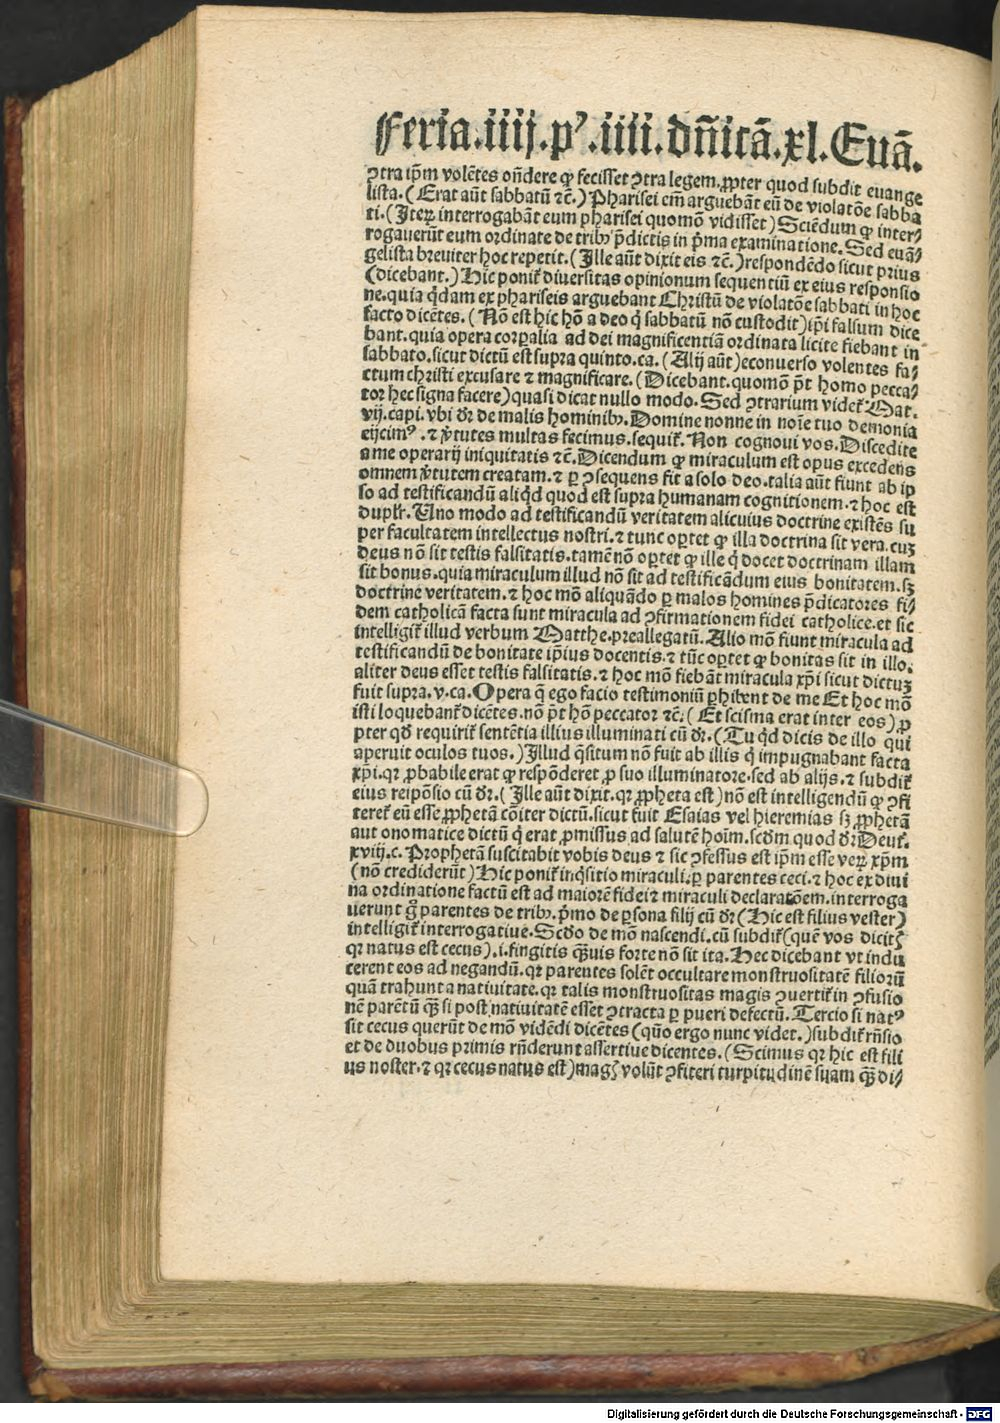 Feria.iiij.pꝰ.iiii.dn̄icā.xl.Euā.
ꝯtra ip̄m volētes on̄dere ꝙ fecisset ꝯtra legem.ꝓpter quod subdit euange
lista.(Erat aūt sabbatū ⁊c̄.)Pharisei em̄ arguebāt eū de violatōe sabba
ti.(Iteꝝ interrogabāt eum pharisei quomō vidisset)Sciēdum ꝙ inter⸗
rogauerūt eum ordinate de tribꝰ p̄dictis in p̄ma examinatione.Sed euā⸗
gelista breuiter hoc repetit.(Ille aūt dixit eis ⁊c̄.)respondēdo sicut prius
(dicebant.)Hic ponit᷑ diuersitas opinionum sequentiū ex eius responsio
ne.quia q̄dam ex phariseis arguebant Christū de violatōe sabbati in hoc
facto dicētes.(Nō est hic hō a deo q̄ sabbatū nō custodit)ip̄i falsum dice
bant.quia opera corꝑalia ad dei magnificentiā ordinata licite fiebant in
sabbato.sicut dictū est supra quinto.ca.(Alij aūt)econuerso volentes fa⸗
ctum christi excusare ⁊ magnificare.(Dicebant.quomō p̄t homo pecca⸗
tor hec signa facere)quasi dicat nullo modo.Sed ꝯtrarium videt᷑ Mat.
vij.capi.vbi dr̄ de malis hominibꝰ.Domine nonne in noīe tuo demonia
eijcimꝰ.⁊ v̄tutes multas fecimus.sequit᷑.Non cognoui vos.Discedite
a me operarij iniquitatis ⁊c̄.Dicendum ꝙ miraculum est opus excedens
omnem v̄tutem creatam.⁊ ꝑ ꝯsequens fit a solo deo.talia aūt fiunt ab ip
so ad testificandū aliq̄d quod est supra humanam cognitionem.⁊ hoc est
duplr̄.Uno modo ad testificandū veritatem alicuius doctrine existēs su
per facultatem intellectus nostri.⁊ tunc oꝑtet ꝙ illa doctrina sit vera.cuꝫ
deus nō sit testis falsitatis.tamē nō oꝑtet ꝙ ille q̄ docet doctrinam illam
sit bonus.quia miraculum illud nō fit ad testificādum eius bonitatem.sꝫ
doctrine veritatem.⁊ hoc mō aliquādo ꝑ malos homines p̄dicatores fi⸗
dem catholicā facta sunt miracula ad ꝯfirmationem fidei catholice.et sic
intelligit᷑ illud verbum Matthe.preallegatū.Alio mō fiunt miracula ad
testificandū de bonitate ip̄ius docentis.⁊ tūc oꝑtet ꝙ bonitas sit in illo.
aliter deus esset testis falsitatis.⁊ hoc mō fiebāt miracula xp̄i sicut dictuꝫ
fuit supra.v.ca.Opera q̄ ego facio testimoniū ꝑhibent de me Et hoc mō
isti loquebant᷑ dicētes.nō p̄t hō peccator ⁊c̄.(Et scisma erat inter eos)ꝓ
pter qd̄ requirit᷑ sentētia illius illuminati cū dr̄.(Tu q̄d dicis de illo qui
aperuit oculos tuos.)Illud q̄situm nō fuit ab illis q̄ impugnabant facta
xp̄i.qꝛ ꝓbabile erat ꝙ respōderet ꝓ suo illuminatore.sed ab alijs.⁊ subdit᷑
eius respōsio cū dr̄.(Ille aūt dixit.qꝛ ꝓpheta est)nō est intelligendū ꝙ ꝯfi
teret᷑ eū esse ꝓphetā cōiter dictū.sicut fuit Esaias vel hieremias sꝫ ꝓphetā
aut onomatice dictū q̄ erat ꝓmissus ad salutē hoīm.scd̄m quod dr̄ Deut᷑.
xviij.c.Prophetā suscitabit vobis deus ⁊ sic ꝯfessus est ip̄m esse veꝝ xp̄m
(nō crediderūt)Hic ponit᷑ inq̄sitio miraculi.ꝑ parentes ceci.⁊ hoc ex diui
na ordinatione factū est ad maiorē fidei ⁊ miraculi declaratōem.interroga
uerunt g̊ parentes de tribꝰ.p̄mo de ꝑsona filij cū dr̄(Hic est filius vester)
intelligit᷑ interrogatiue.Scd̄o de mō nascendi.cū subdit᷑(quē vos dicitꝭ
qꝛ natus est cecus).i.fingitis qꝫuis forte nō sit ita.Hec dicebant vt indu
cerent eos ad negandū.qꝛ parentes solēt occultare monstruositatē filiorū
quā trahunt a natiuitate.qꝛ talis monstruositas magis ꝯuertit᷑ in ꝯfusio
nē parētū qꝫ si post natiuitatē esset ꝯtracta ꝑ pueri defectū.Tercio si natꝰ
sit cecus querūt de mō vidēdi dicētes(quō ergo nunc videt.)subdit᷑ rn̄sio
et de duobus primis rn̄derunt assertiue dicentes.(Scimus qꝛ hic est fili
us noster.⁊ qꝛ cecus natus est)magꝭ volūt ꝯfiteri turpitudinē suam qꝫ di⸗
Digitalisierung gefördert durch die Deutsche Forschungsgemeinschaft - DFG